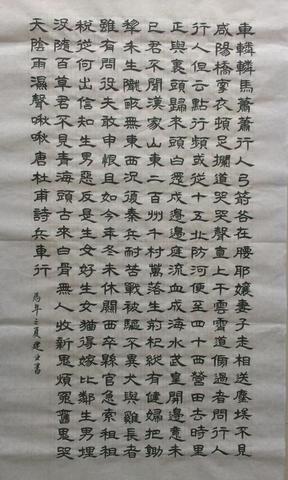 車轔轔馬蕭蕭行人弓箭各在腰耶孃妻子走相送塵埃不見
咸陽橋牽衣頓足攔道哭哭聲直上干雲霄道傍過者問行人
行人但云點行頻或從十五北防河便至四十西營田去時里
正與裹頭歸來頭白還戍邊邊庭流血成海水武皇開邊意未
已君不聞漢家山東二百州千村萬落生荊杞縱有健婦把鋤
犂禾生隴畝無東西況復秦兵耐苦戰被驅不異犬與雞長者
雖有問役夫敢申恨且如今年冬未休關西卒縣官急索租租
稅從何出信知生男惡反是生女好生女猶得嫁比鄰生男埋
沒隨百草君不見青海頭古來白骨無人收新鬼煩冤舊鬼哭
天陰雨濕聲啾啾唐杜甫詩兵車行
年之夏建書